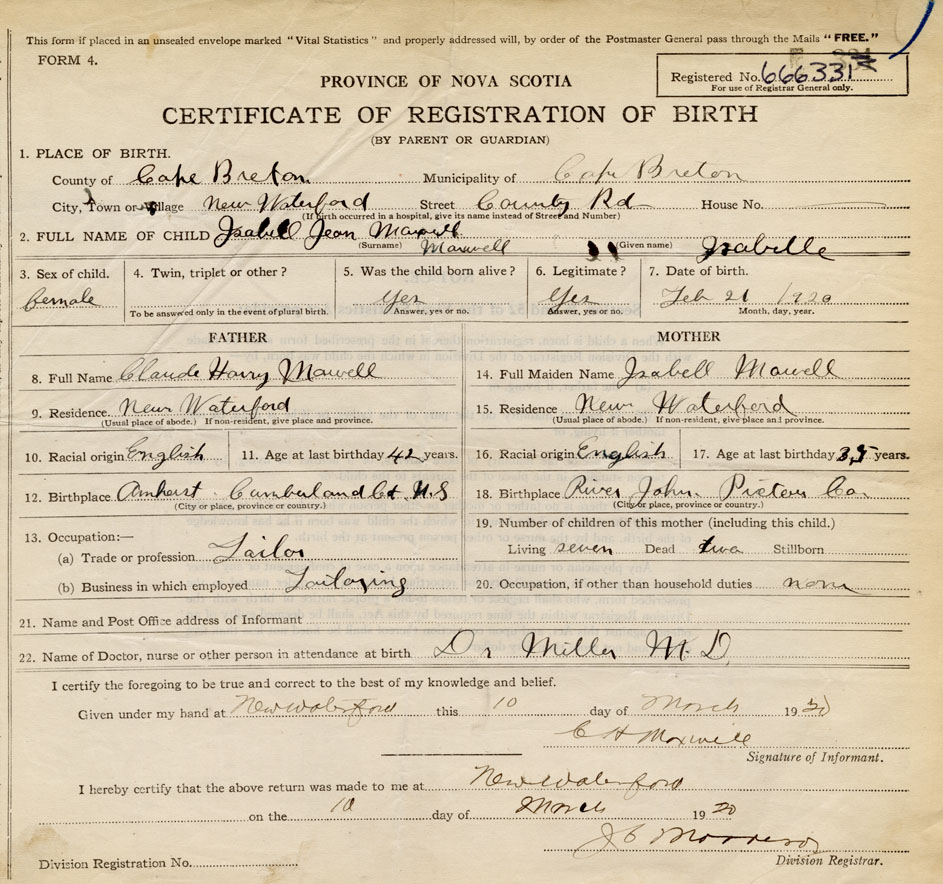 This form if placed in an unsealed envelope marked "Vital Statistics" and properly addressed will, by order of the Postmaster General pass through the Mails "FREE."
FORM 4.
PROVINCE OF NOVA SCOTIA
Registered No. 666331
For use of Registrar General only.
CERTIFICATE OF REGISTRATION OF BIRTH
(BY PARENT OR GUARDIAN)
1. PLACE OF BIRTH.
County of Cape Breton Municipality of Cape Breton
City, Town or Village New Waterford Street County Rd House No.
(If birth occurred in a hospital, give its name instead of Street and Number)
2. FULL NAME OF CHILD Isabell Jean Maxwell
(Surname) Maxwell (Given name) Isabelle
3. Sex of child. 4. Twin, triplet or other? 5. Was the child born alive? 6. Legitimate? 7. Date of birth.
female Yes Yes Feb 21 1920
To be answered only in the event of plural birth. Answer, yes or no. Answer, yes or no. Month, day, year.
FATHER MOTHER
8. Full Name Claude Harry Maxwell 14. Full Maiden Name Isabell Maxwell
9. Residence. New Waterford 15. Residence New Waterford
(Usual place of abode.) If non-resident, give place and province. (Usual place of abode.) If non-resident, give place and province.
10. Racial origin English 11. Age at last birthday 42 years. 16. Racial origin English 17. Age at last birthday 35 years.
12. Birthplace Amherst Cumberland Co N.S 18. Birthplace River John Pictou Co.
(City or place, province or country.) (City or place, province or country.)
13. Occupation:— 19. Number of children of this mother (including this child.)
(a) Trade or profession Tailor Living seven Dead two Stillborn
(b) Business in which employed Tailoring 20. Occupation, if other than household duties none
21. Name and Post Office address of Informant
22. Name of Doctor, nurse or other person in attendance at birth Dr Miller M.D.
I certify the foregoing to be true and correct to the best of my knowledge and belief.
Given under my hand at New Waterford this 10 day of March 1920
C H Maxwell
Signature of Informant.
I hereby certify that the above return was made to me at New Waterford
on the 10 day of March 1920
Division Registration No. Division Registrar.